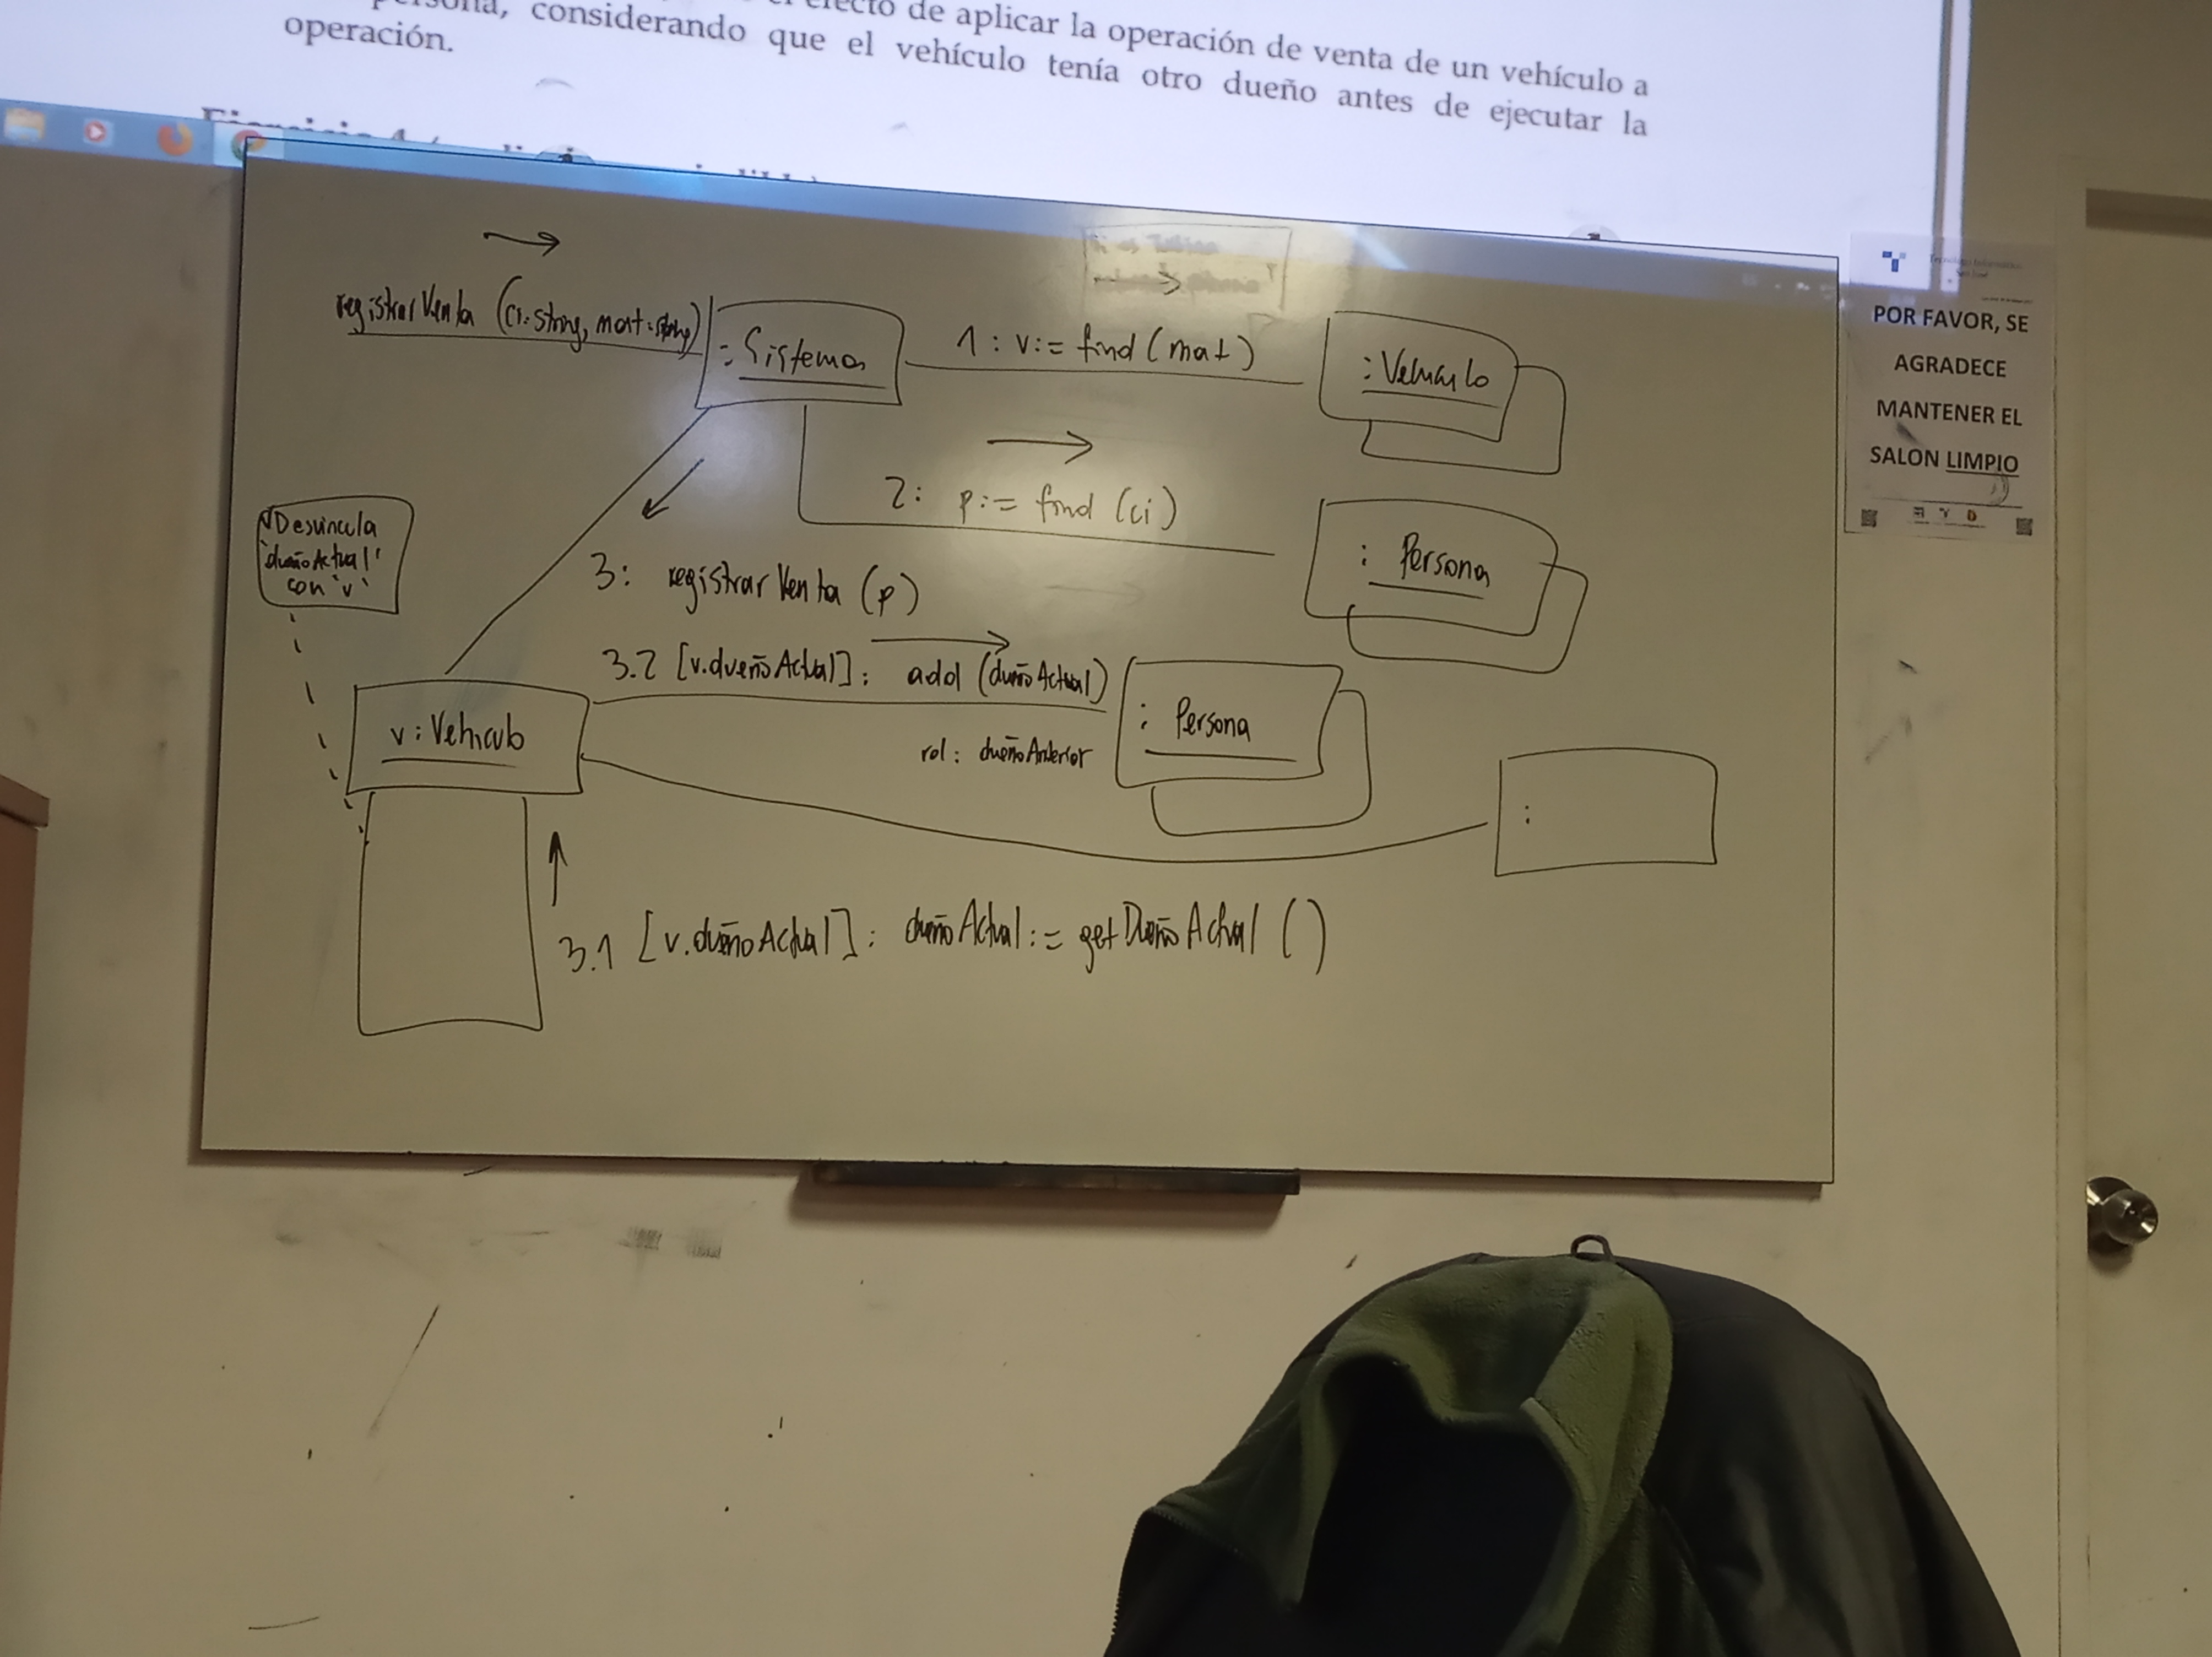 efecto de aplicar la operación de venta de un vehículo a
persona, considerando que el vehículo tenía otro dueño antes de ejecutar la
operación.
registrarVenta (ci:string, mat:string)
: Sistema
1 : v:= find (mat)
: Vehículo
2: p:= find (ci)
: Persona
3: registrarVenta (p)
Desvincula
'dueñoActual'
con 'v'
3.2 [v.dueñoActual]: add (dueñoActual)
: Persona
rol: dueñoAnterior
v: Vehículo
:
3.1 [v.dueñoActual]: dueñoActual:= getDueñoActual ()
POR FAVOR, SE
AGRADECE
MANTENER EL
SALON LIMPIO